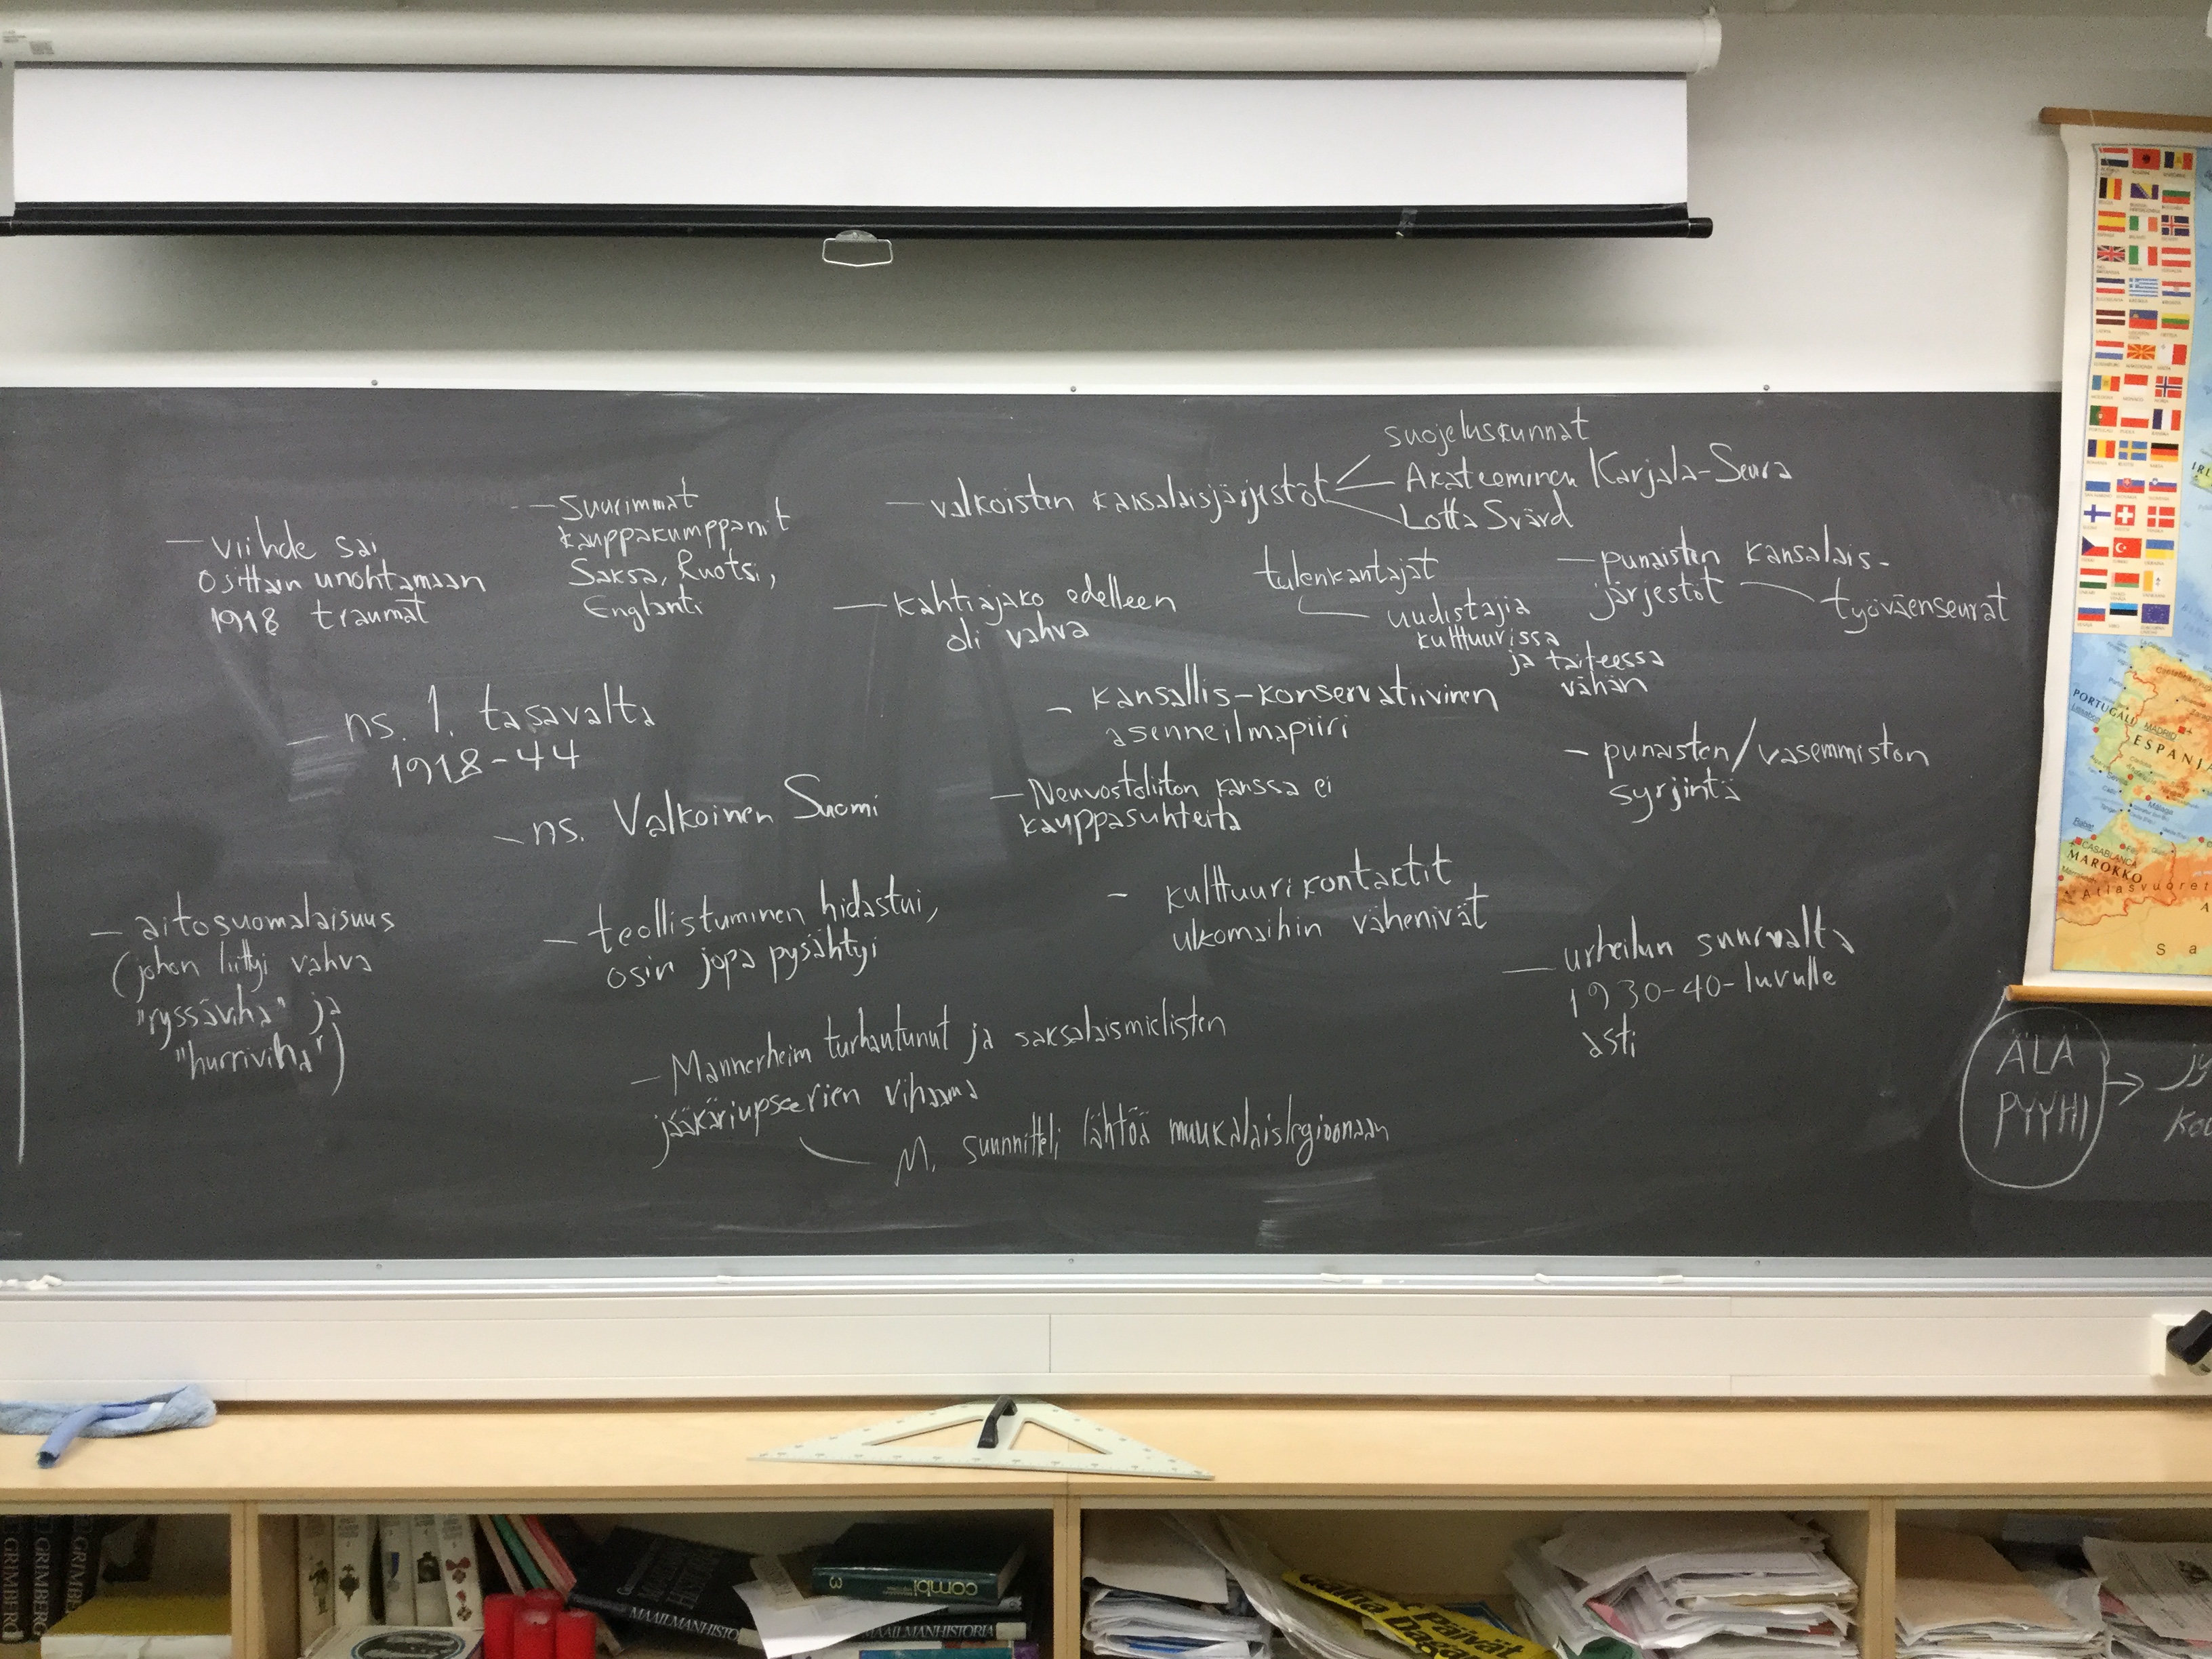 suojeluskunnat
– valkoisten kansalaisjärjestöt
Akateeminen Karjala-Seura
Lotta Svärd
– Suurimmat
kauppakumppanit
Saksa, Ruotsi,
Englanti
– viihde sai
osittain unohtamaan
1918 traumat
– kahtiajako edelleen
oli vahva
tulenkantajat
uudistajia
kulttuurissa
ja taiteessa
vähän
– punaisten kansalais-
järjestöt
työväenseurat
– ns. 1. tasavalta
1918-44
– kansallis-konservatiivinen
asenneilmapiiri
– punaisten/vasemmiston
syrjintä
– ns. Valkoinen Suomi
– Neuvostoliiton kanssa ei
kauppasuhteita
– aitosuomalaisuus
(johon liittyi vahva
"ryssäviha" ja
"hurriviha")
– teollistuminen hidastui,
osin jopa pysähtyi
– kulttuurikontaktit
ulkomaihin vähenivät
– urheilun suurvalta
1930-40-luvulle
asti
– Mannerheim turhautunut ja saksalaismielisten
jääkäriupseerien vihaama
M. suunnitteli lähtöä muukalaislegioonaan
ÄLÄ
PYYHI
PORTUGALI
MADRID
ESPANJA
CASABLANCA
MAROKKO
Atlasvuoret
GRIMBERG
GRIMBERG
GRIMBERG
MAAILMANHISTO
combi
3
MAAILMANHISTORIA
Päivät